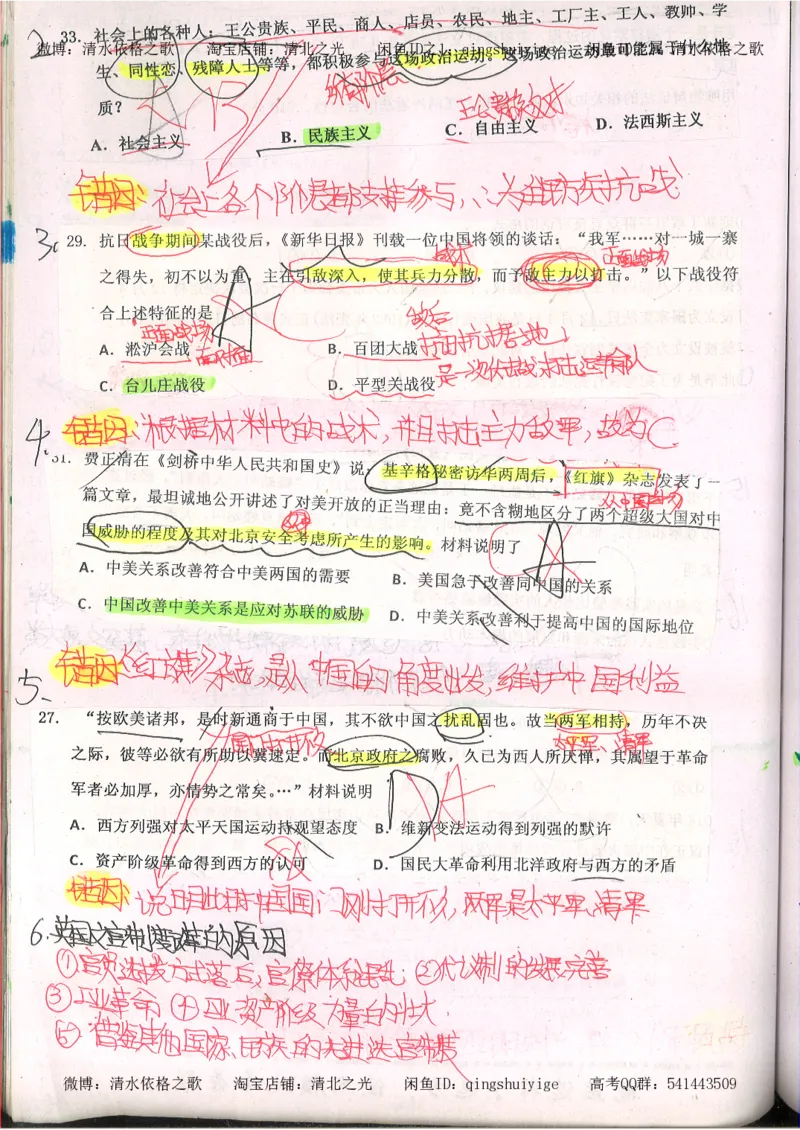 2
33. 社会上的各种人：王公贵族、平民、商人、店员、农民、地主、工厂主、工人、教师、学
微博：清水依格之歌 淘宝店铺：清北之光 闲鱼ID：qingshuiyige
生、同性恋、残障人士等等，都积极参与这场政治运动。这场政治运动最可能属于什么性
质？
王公贵族反对
A．社会主义 B．民族主义 C．自由主义 D．法西斯主义
错因：社会上各个阶层都支持参与，∴为民族抗战
3.
29. 抗日战争期间某战役后，《新华日报》刊载一位中国将领的谈话：“我军……对一城一寨
战术 正面战场
之得失，初不以为重，主在引敌深入，使其兵力分散，而予敌主力以打击。”以下战役符
合上述特征的是 A
敌后
正面战场
A．淞沪会战 B．百团大战 打击抗日据地
是一次伏击战 打击运输队
C．台儿庄战役 D．平型关战役
4. 错因：根据材料中的战术，并且打击主力敌军，故为C.
31. 费正清在《剑桥中华人民共和国史》说：基辛格秘密访华两周后，《红旗》杂志发表了一
从中国出场
篇文章，最坦诚地公开讲述了对美开放的正当理由：竟不含糊地区分了两个超级大国对中
国威胁的程度及其对北京安全考虑所产生的影响。材料说明了 A
A．中美关系改善符合中美两国的需要 B．美国急于改善同中国的关系
C．中国改善中美关系是应对苏联的威胁 D．中美关系改善利于提高中国的国际地位
错因《红旗》杂志，是从中国的角度出发，维护中国利益
5、
27. “按欧美诸邦，是时新通商于中国，其不欲中国之扰乱固也。故当两军相持，历年不决
国门打开不久 太平军、清军
之际，彼等必欲有所助以冀速定。而北京政府之腐败，久已为西人所厌惮，其属望于革命
军者必加厚，亦情势之常矣。…”材料说明 D A
A．西方列强对太平天国运动持观望态度 B．维新变法运动得到列强的默许
C．资产阶级革命得到西方的认可 D．国民大革命利用北洋政府与西方的矛盾
错因：说明此时中国国门刚打开不久，两军是太平军、清军
6.英国文官制度改革的原因
①官员选拔方式落后，官僚体系混乱 ②代议制的发展完善
③工业革命 ④工业资产阶级力量的壮大
⑤借鉴其他国家、民族的先进选官制度
微博：清水依格之歌 淘宝店铺：清北之光 闲鱼ID：qingshuiyige 高考QQ群：541443509